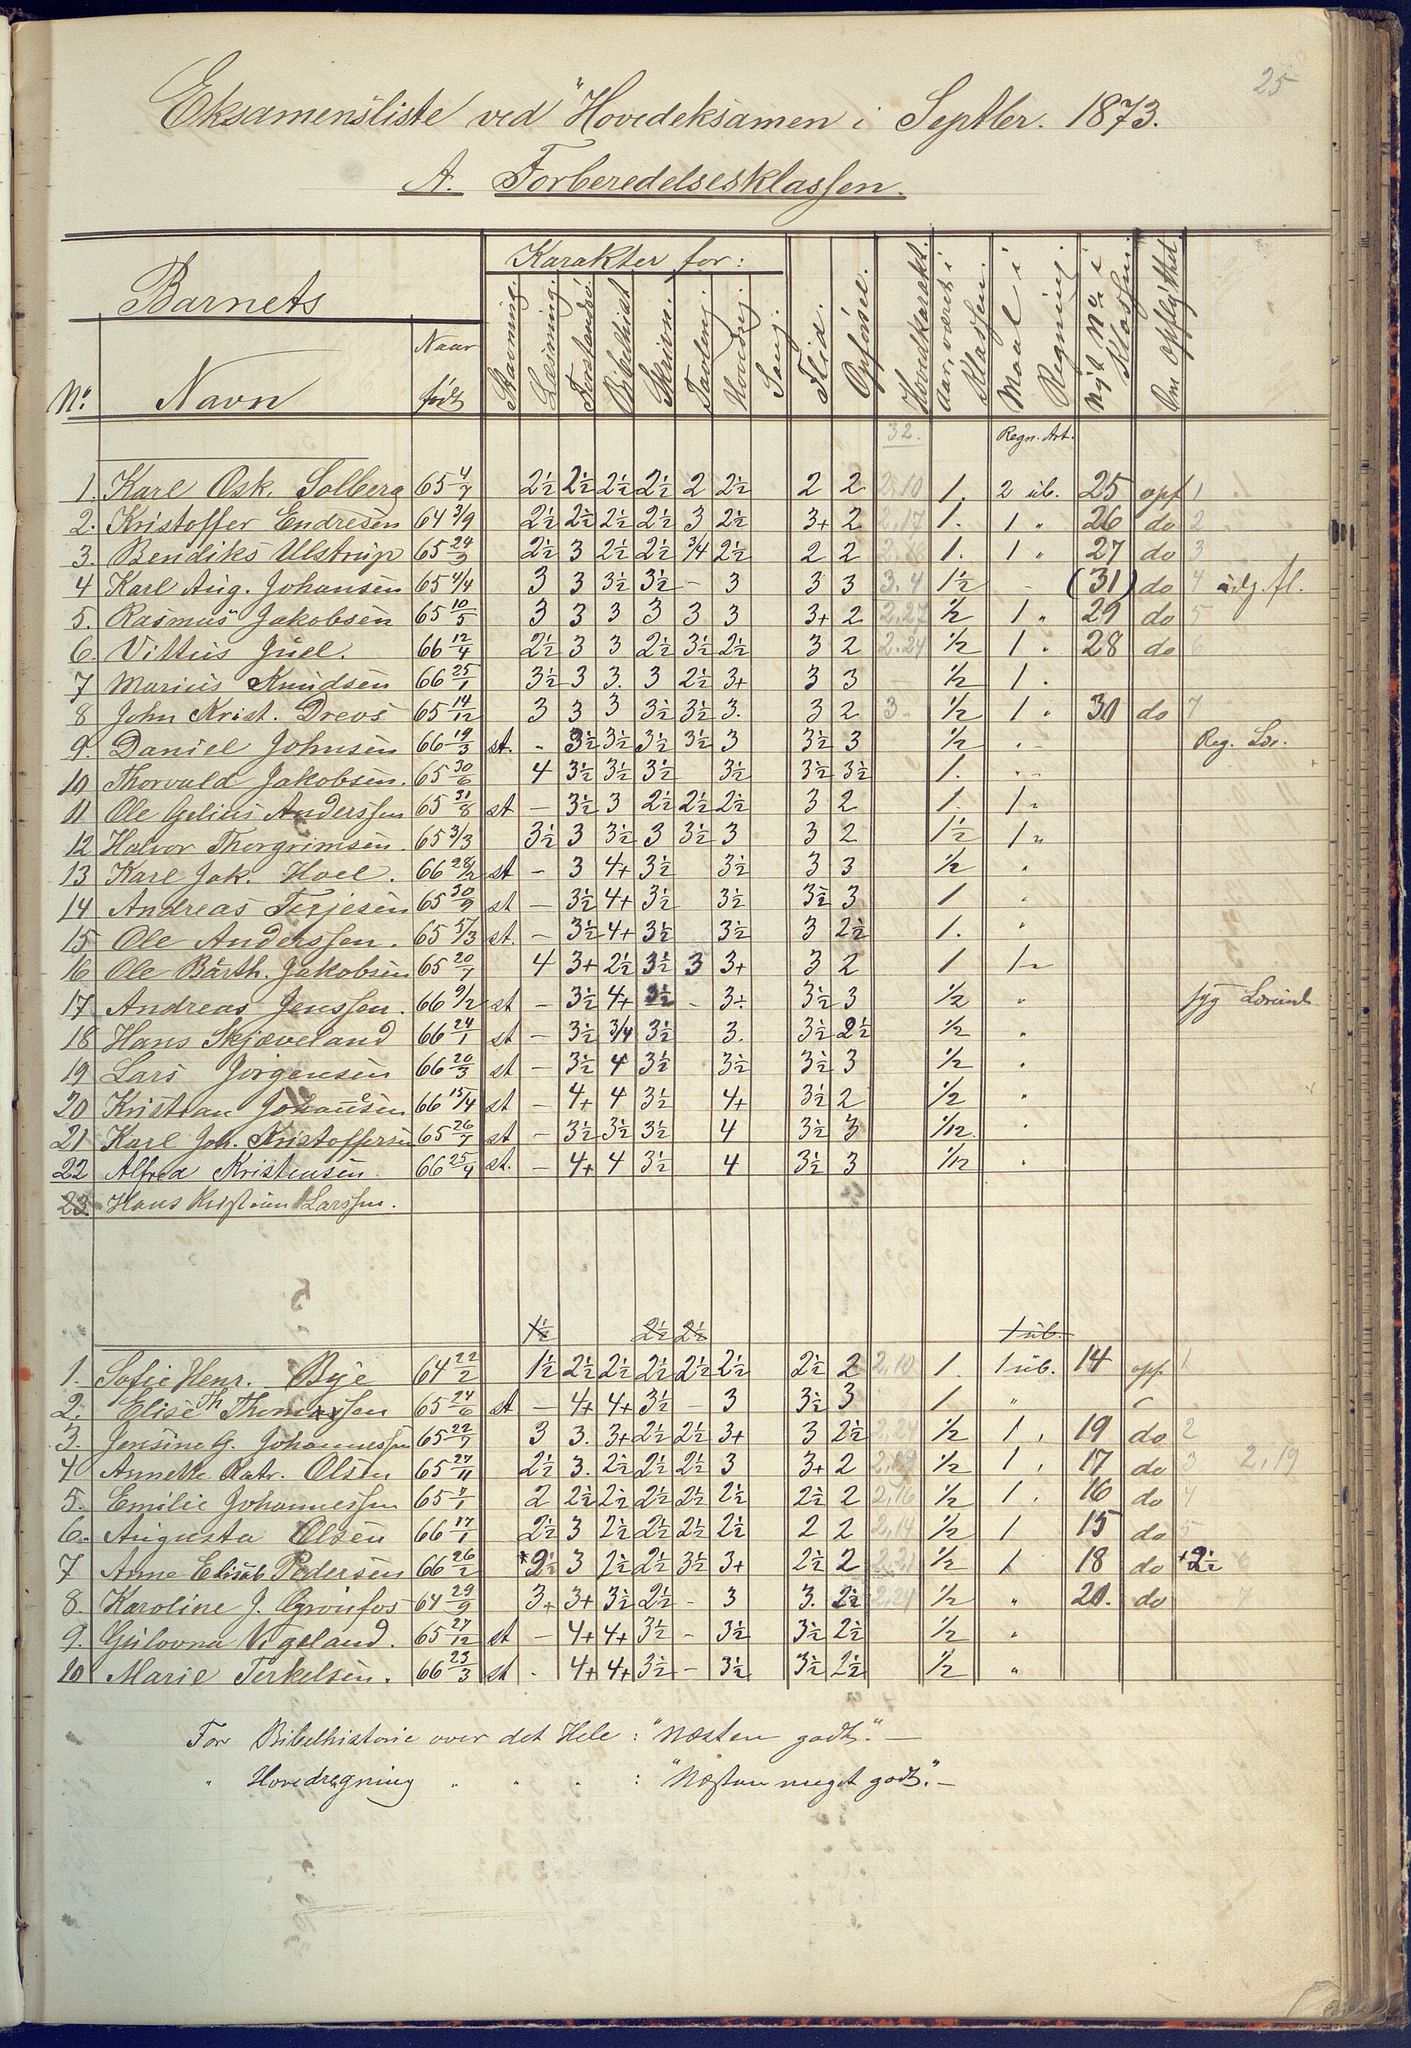 25
Eksamensliste ved Hovedeksamen i Septbr. 1873.
A. Forberedelsesklassen.
Barnets
Karakter for:
No. Navn Naar født Stavning. Læsning. Forstandsö. Bibelhist Skrivn. Tavlergn. Hovedrgn. Sang. Flid. Opførsel. Hovedkarakt. Aar, været i Klassen. Maal i Regning. Nyt No. i Klassen. Om opflyttet
32. Regn. Art.
1. Karl Osk. Solberg 65 4/7 2½ 2½ 2½ 2½ 2 2½ 2 2 2,10 1. 2 üb. 25 opf 1
2. Kristoffer Endresen 64 3/9 2½ 2½ 2½ 2½ 3 2½ 3+ 2 2,17 1. 1 " 26 do 2
3. Bendiks Ulstrup 65 24/9 2½ 3 2½ 2½ 3/4 2½ 2 2 1. 1 " 27 do 3
4 Karl Aug. Johansen 65 4/4 3 3 3½ 3½ - 3 3 3 3.4 1½ (31) do 4
5. Rasmus Jakobsen 65 10/5 3 3 3 3 3 3 3+ 2 2,27 ½ 1 " 29 do 5
6. Vittus Juel. 66 12/4 2½ 3 3 2½ 3½ 2½ 3 2 2.24 ½ 1 " 28 do 6
7 Marius Knudsen 66 25/1 3½ 3 3. 3 2½ 3+ 3 3 ½ 1 "
8 John Krist. Drevs 65 14/12 3 3 3 3½ 3½ 3. 3 2 3. ½ 1 " 30 do 7
9. Daniel Johnsen 66 19/3 st. - 3½ 3½ 3½ 3½ 3 3½ 3 ½ " Reg. Læ.
10 Thorvald Jakobsen. 65 30/6 4 3½ 3½ 3½ 3½ 3½ 3½ 1. "
11 Ole Gelius Anderssen 65 31/8 st - 3½ 3 2½ 2½ 2½ 3 2 1. 1 "
12 Halvor Thorgrimsen. 65 3/3 3½ 3 3½ 3 3½ 3 3 2 1½ 1 "
13 Karl Jak. Hoel. 66 28/2 st - 3 4+ 3½ 3½ 3 3 ½ "
14 Andreas Terjesen 65 30/9 st - 3½ 4+ 3½ 3½ 3½ 3 1 "
15 Ole Anderssen. 65 5/3 st. - 3½ 4+ 3½ 3½ 3 2½ 1. "
16 Ole Barth. Jakobsen 65 20/7 4 3+ 2½ 3½ 3 3+ 3 2 1 1 "
17 Andreas Jenssen. 66 9/2 st - 3½ 4+ 3½ - 3+ 3½ 3 ½ " syg
18 Hans Skjæveland 66 24/1 st - 3½ 3/4 3½ 3. 3½ 2½ ½ "
19 Lars Jörgensen 66 20/3 st - 3½ 4 3½ 3½ 3½ 3 ½ "
20 Kristian Johansen 66 15/4 st - 4+ 4 3½ 4+ 3½ 2 ½ "
21 Karl Joh. Kristoffersen 65 26/7 st - 3½ 3½ 3½ 4 3½ 3 1/12. "
22 Alfred Kristensen. 66 25/4 st. - 4+ 4 3½ 4 3½ 3 1/12 "
23 Hans Kristian Larssen.
1½ 2½ 2½ 1 üb.
1. Sofie Henr. Bye 64 22/2 1½ 2½ 2½ 2½ 2½ 2½ 2½ 2 2,10 1. 1 üb. 14 opf. 1
2. Elise Th Thomassen 65 24/6 st - 4+ 4+ 3½ - 3 3½ 3 1 "
3. Jensine G. Johannessen 65 22/7 3 3. 3+ 2½ 2½ 3+ 3 2½ 2,24 ½ 1 " 19 do 2
4 Annette Katr. Olsen 65 27/11 2½ 3. 2½ 2½ 2½ 3 3+ 2 ½ 1 " 17 do 3 2,19
5. Emilie Johannessen 65 2 2½ 2½ 2½ 2½ 2½ 2½ 2 2,16 ½ 1 " 16 do 4
6. Augusta Olsen 66 17/1 2½ 3 2½ 2½ 2½ 2½ 2 2 2,14 ½ 1 15 do 5
7 Anne Elisab Pedersen 66 26/2 +2½ 3 2½ 2½ 3½ 3+ 2½ 2 2,21 ½ 1 18 do +2½ 6
8. Karoline J. Grönfos 64 29/9 3+ 3+ 3½ 2½ - 3 3. 2½ 2,24 ½ " 20. do 7
9. Gulovna Vigeland. 65 27/12 st - 4+ 4+ 3½ - 3½ 3½ 2½ ½ "
10 Marie Terkelsen. 66 23/3 st - 4+ 4+ 3½ - 3½ 3½ 2½ ½ "
For Bibelhistorie over det Hele: "Næsten godt."—
" Hovedregning " " " : "Næsten meget godt."—